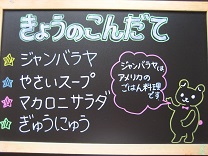 きょうのこんだて
ジャンバラヤ
やさいスープ
マカロニサラダ
ぎゅうにゅう
ジャンバラヤは
アメリカの
ごはん料理
です